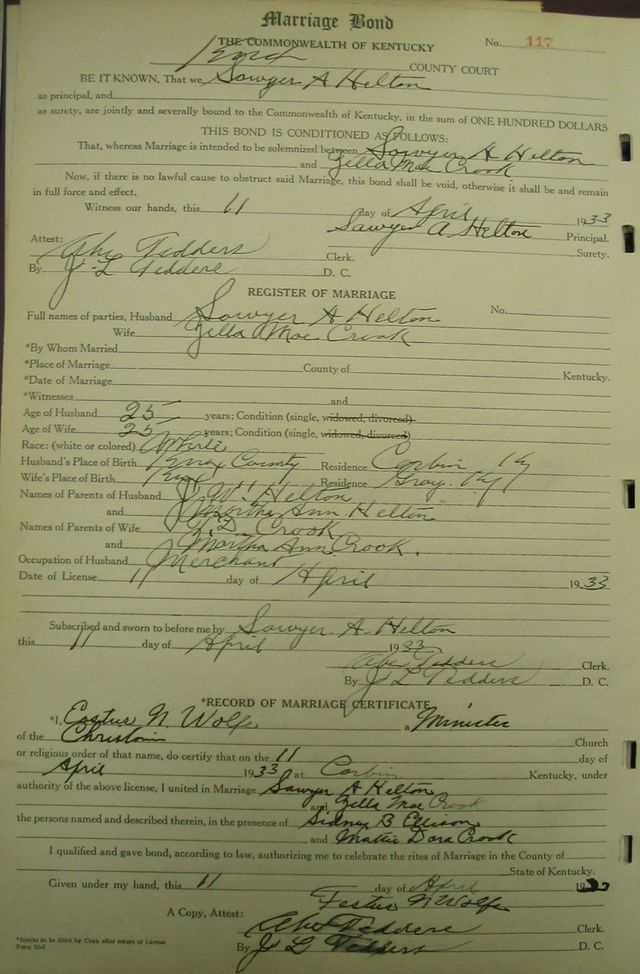 Marriage Bond
THE COMMONWEALTH OF KENTUCKY No. 117
Knox COUNTY COURT
BE IT KNOWN, That we Sawyer A Helton
as principal, and
as surety, are jointly and severally bound to the Commonwealth of Kentucky, in the sum of ONE HUNDRED DOLLARS
THIS BOND IS CONDITIONED AS FOLLOWS:
That, whereas Marriage is intended to be solemnized between Sawyer A Helton
and Zella Mae Crook
Now, if there is no lawful cause to obstruct said Marriage, this bond shall be void, otherwise it shall be and remain
in full force and effect.
Witness our hands, this 11 day of April 1933
Sawyer A Helton Principal.
Attest: Surety.
Abe Tedders Clerk.
By J. L Tedders D. C.
REGISTER OF MARRIAGE
Full names of parties, Husband Sawyer A Helton No.
Wife Zella Mae Crook
*By Whom Married
*Place of Marriage County of Kentucky.
*Date of Marriage
*Witnesses and
Age of Husband 25 years; Condition (single, widowed, divorced)
Age of Wife 25 years; Condition (single, widowed, divorced)
Race: (white or colored) White
Husband's Place of Birth Knox County Residence Corbin Ky
Wife's Place of Birth Knox Residence Gray. Ky
Names of Parents of Husband J W. Helton
and Martha Ann Helton
Names of Parents of Wife D. Crook
and Martha Ann Crook.
Occupation of Husband Merchant
Date of License 11 day of April 1933
Subscribed and sworn to before me by Sawyer A. Helton
this 11 day of April 1933
Abe Tedders Clerk.
By J L Tedders D. C.
*RECORD OF MARRIAGE CERTIFICATE
*I, Eastus N. Wolfe a Minister
of the Christain Church
or religious order of that name, do certify that on the 11 day of
April 1933 at Corbin Kentucky, under
authority of the above license, I united in Marriage Sawyer A Helton
and Zella Mae Crook
the persons named and described therein, in the presence of Sidney B Ellison
and Mattie Dora Crook
I qualified and gave bond, according to law, authorizing me to celebrate the rites of Marriage in the County of
State of Kentucky.
Given under my hand, this 11 day of April 193
Festus N Wolfe
A Copy, Attest: Abe Tedders Clerk.
By J L Tedders D. C.
*Blanks to be filled by Clerk after return of License